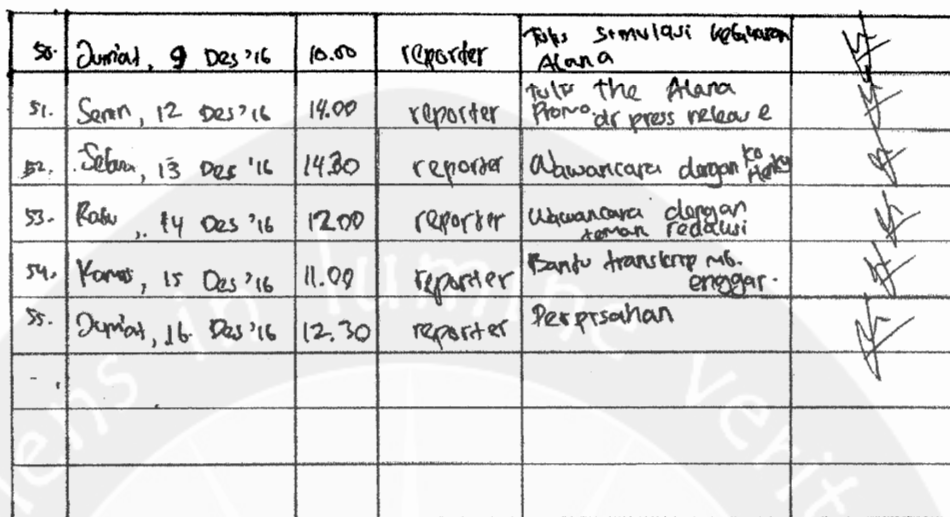 50. Jumat, 9 Des '16 10.00 reporter Tulis simulasi kebakaran
Alana
51. Senin, 12 Des '16 14.00 reporter Tulis the Alana
Promo dr press release
52. Selasa, 13 Des '16 14.30 reporter Wawancara dengan Ko
Henky
53. Rabu, 14 Des '16 12.00 reporter Wawancara dengan
teman redaksi
54. Kamis, 15 Des '16 11.00 reporter Bantu transkrip Mb.
enggar.
55. Jumat, 16 Des '16 12.30 reporter Perpisahan
ens in lumine verit